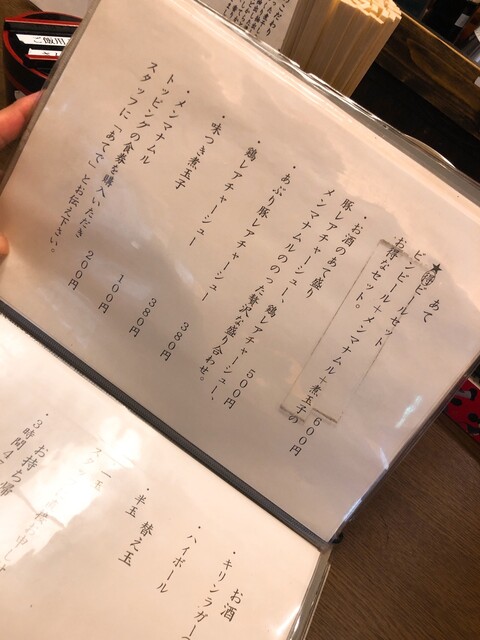 あて
★得ビールセット 600円
ビンビール＋メンマナムル＋煮玉子の
お得なセット。
・お酒のあて盛り 500円
豚レアチャーシュー、鶏レアチャーシュー、
メンマナムルののった贅沢な盛り合わせ。
・あぶり豚レアチャーシュー 380円
・鶏レアチャーシュー 380円
・味つき煮玉子 100円
・メンマナムル 200円
トッピングの食券を購入いただき
スタッフに「あてで」とお伝え下さい。
お酒
・キリンラガー
・ハイボール
替え玉
・半玉
一玉
スタッ
・お持ち帰
3時間